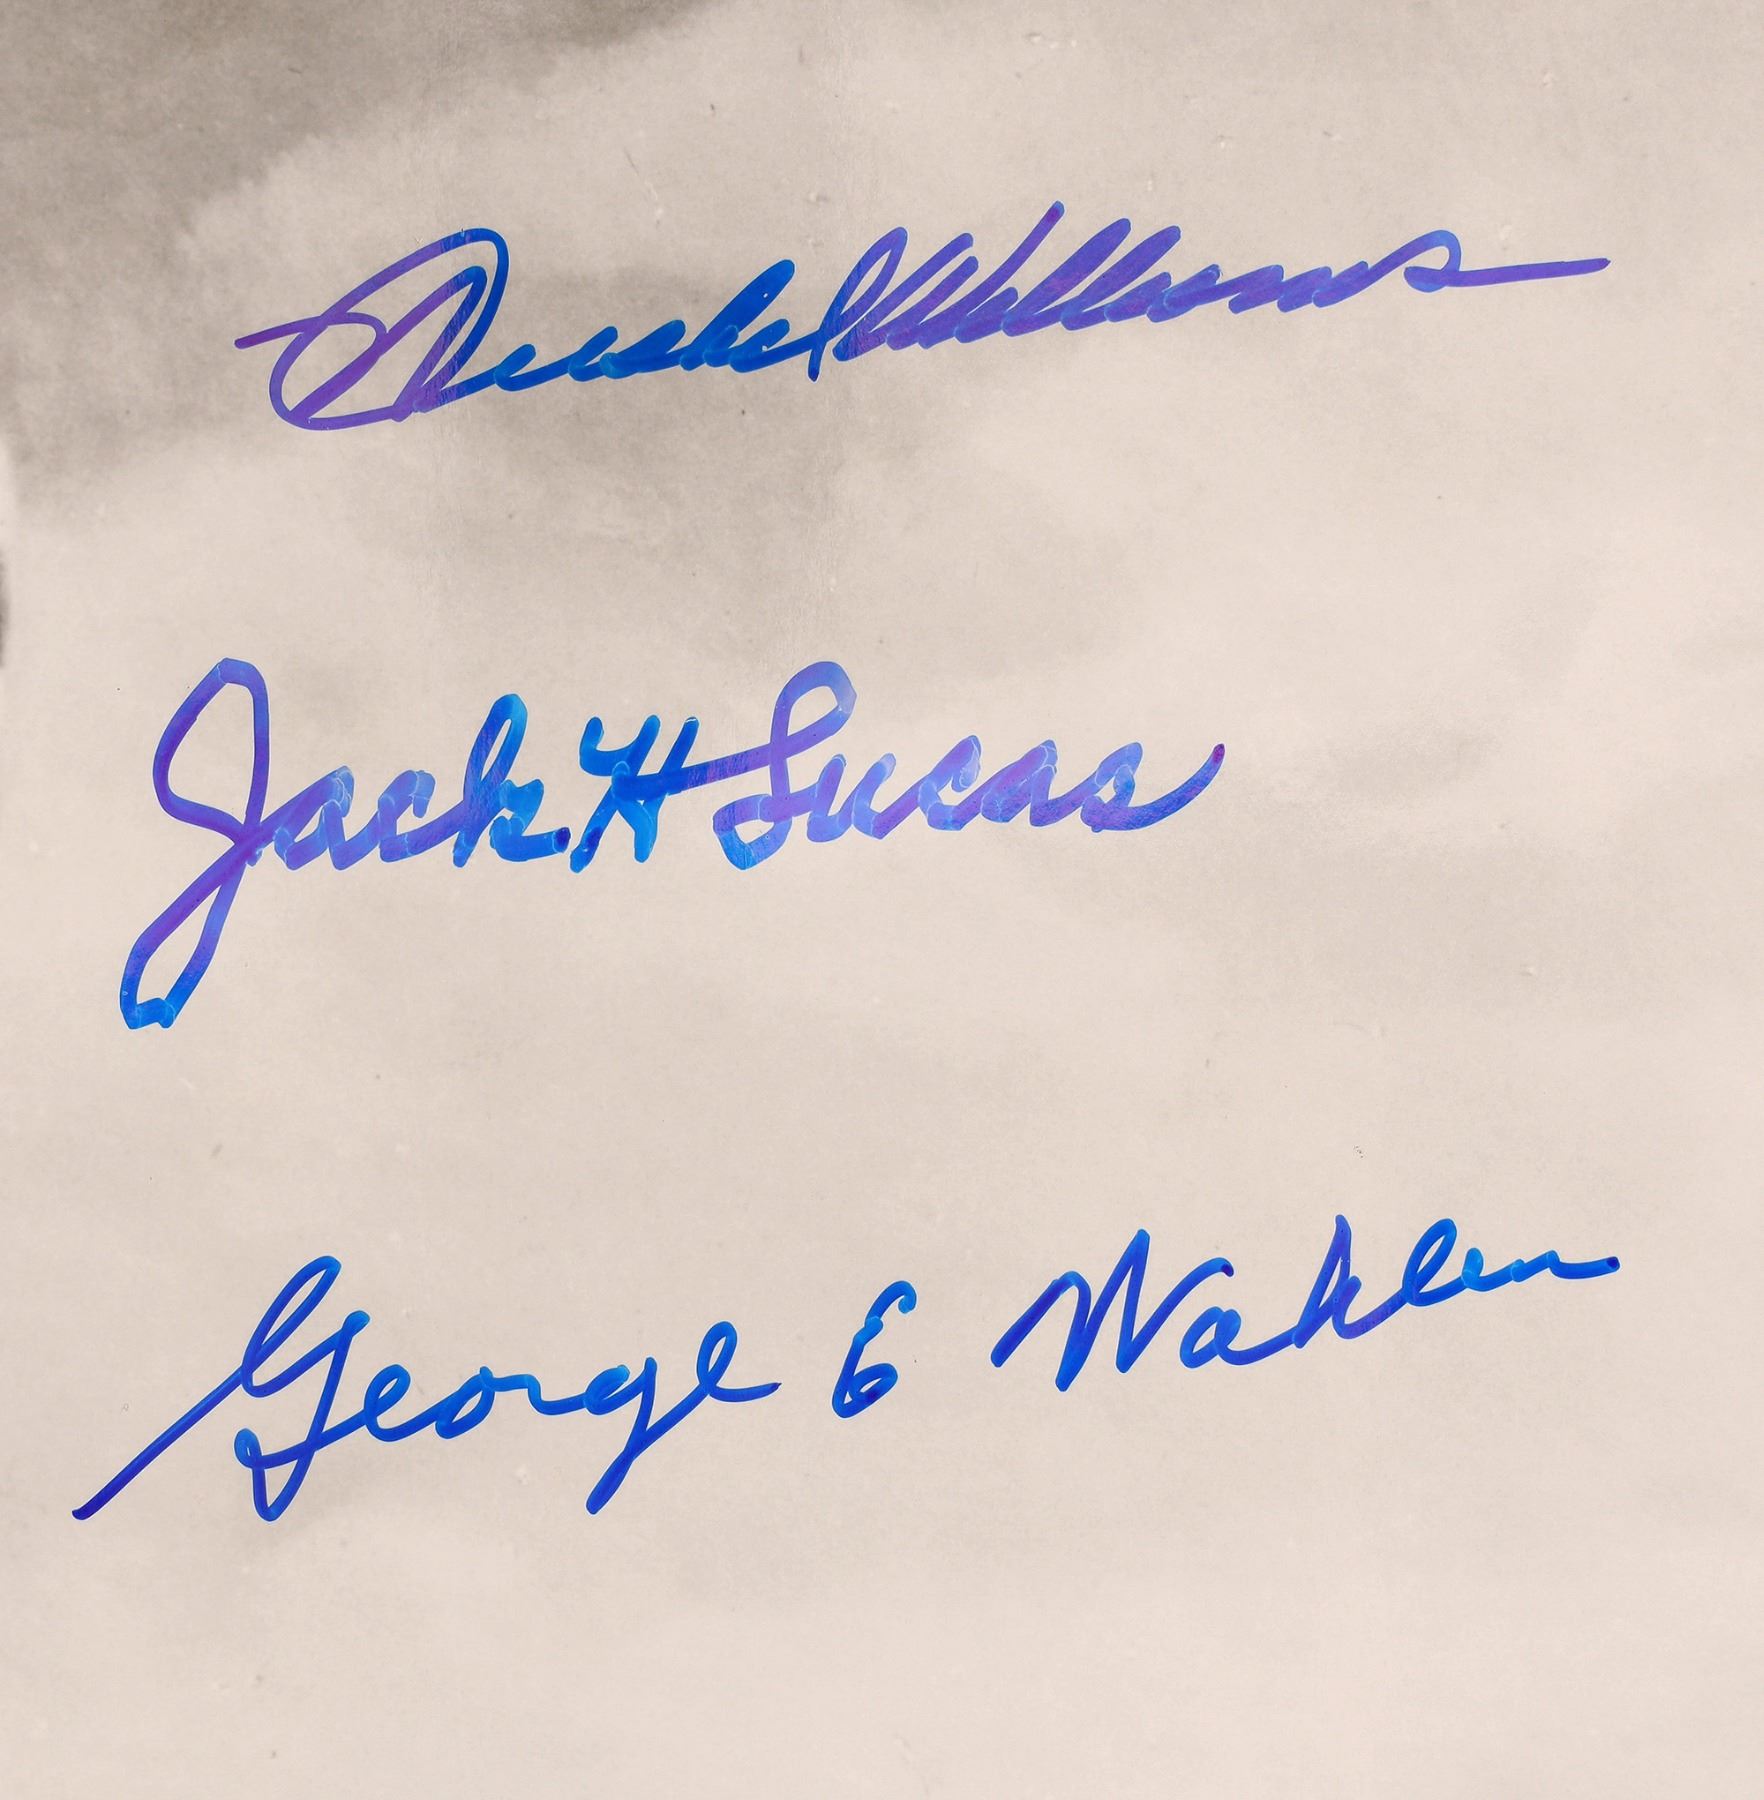 Hershel Williams
Jack H Lucas
George E Wahlen